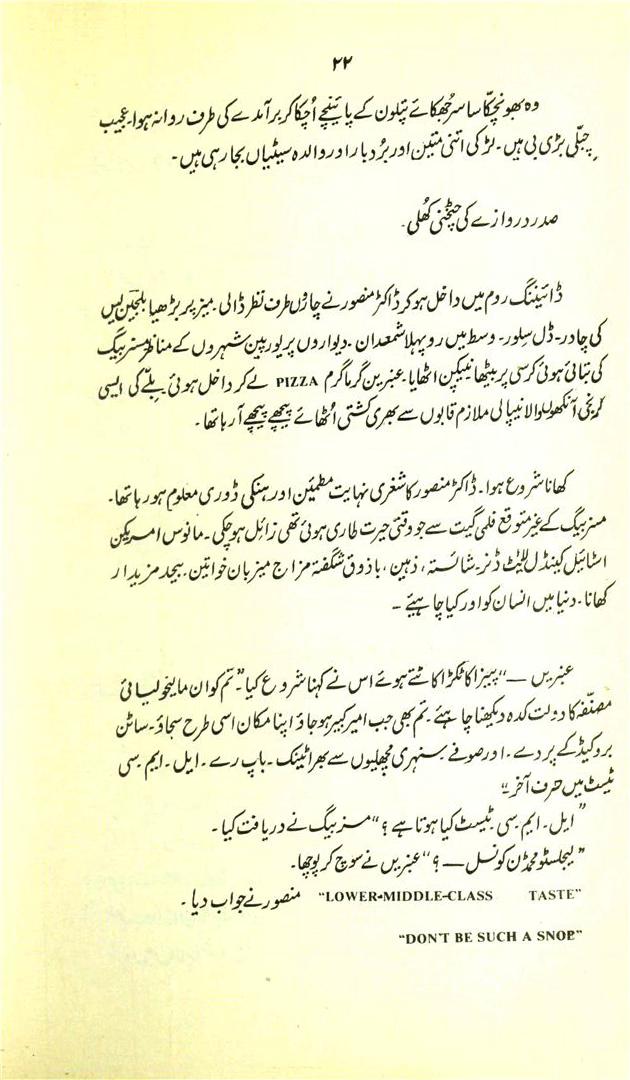 ۲۲
وہ بھونچکا سا سر جھکائے پتلون کے پائینچے اُچکا کر برآمدے کی طرف روانہ ہوا۔ عجیب
جبلّی بڑی بی ہیں۔ لڑکی اتنی متین اور بُردبار اور والدہ سیٹیاں بجا رہی ہیں۔
صدر دروازے کی چٹخنی کُھلی۔
ڈائیننگ روم میں داخل ہو کر ڈاکٹر منصور نے چاروں طرف نظر ڈالی۔ میز پر بڑھیا بلجین لیس
کی چادر۔ ڈل سِلور۔ وسط میں روپہلا شمعدان۔ دیواروں پر یوروپین شہروں کے مناظر مسز بیگ
کی بتائی ہوئی کرسی پر بیٹھا نیپکن اٹھایا۔ عنبرین گرماگرم PIZZA لے کر داخل ہوئی۔ بِلّے کی ایسی
کرنجی آنکھوں والا نیپالی ملازم قابوں سے بھری کشتی اُٹھائے پیچھے پیچھے آ رہا تھا۔
کھانا شروع ہوا۔ ڈاکٹر منصور کاشغری نہایت مطمئین اور ہنکی ڈوری معلوم ہو رہا تھا۔
مسز بیگ کے غیر متوقع فلمی گیت سے جو وقتی حیرت طاری ہوئی تھی زائل ہو چکی۔ مانوس امریکن
اسٹائیل کینڈل لائٹ ڈنر۔ شائستہ، ذہین، باذوق شگفتہ مزاج میزبان خواتین۔ بیحد مزیدار
کھانا۔ دنیا میں انسان کو اور کیا چاہیئے۔
عنبریں — "پیزا کا ٹکڑا کاٹتے ہوئے اس نے کہنا شروع کیا" تم کو ان مالیخولیائی
مصنّفہ کا دولت کدہ دیکھنا چاہئے۔ تم بھی جب امیر کبیر ہو جاؤ اپنا مکان اسی طرح سجاؤ۔ ساٹن
بروکیڈ کے پردے۔ اور صوفے۔ سنہری مچھلیوں سے بھرا ٹینک۔ باپ رے۔ ایل۔ ایم۔ سی
ٹیسٹ میں حرف آخر۔"
"ایل۔ ایم سی ٹیسٹ کیا ہوتا ہے؟" مسز بیگ نے دریافت کیا۔
"لیجلسٹو محمڈن کونسل —؟" عنبریں نے سوچ کر پوچھا۔
"LOWER-MIDDLE-CLASS TASTE" منصور نے جواب دیا۔
"DON'T BE SUCH A SNOB"